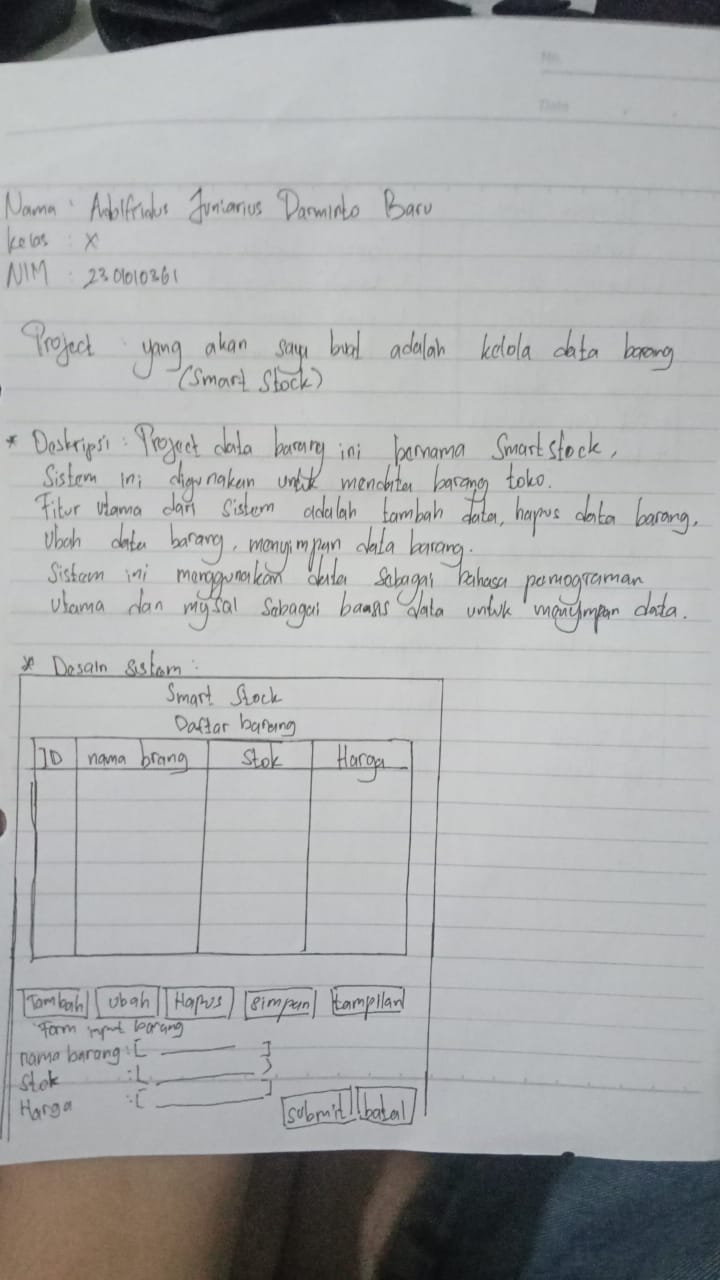 No.
Date
Nama : Adolfridus Juniarius Darminto Baru
Kelas : X
NIM : 2301010361
Project yang akan saya buat adalah kelola data barang
(Smart Stock)
* Deskripsi : Project data barang ini bernama Smartstock,
Sistem ini digunakan untuk mendata barang toko.
Fitur utama dari sistem adalah tambah data, hapus data barang,
Ubah data barang, menyimpan data barang.
Sistem ini menggunakan data sebagai bahasa pemograman
utama dan mysql sebagai basis data untuk menyimpan data.
* Desain sistem :
Smart Stock
Daftar barang
ID nama brang Stok Harga
Tambah Ubah Hapus Simpan tampilan
Form input barang
nama barang : [ ]
Stok : [ ]
Harga : [ ]
Submit batal